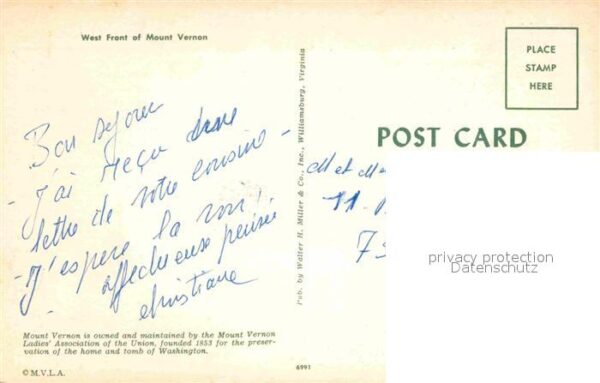 West Front of Mount Vernon
Bon séjour
- J'ai reçu
lettre de votre cousine -
- J'espère la voir!
affectueuse pensée
christiane
Mount Vernon is owned and maintained by the Mount Vernon
Ladies' Association of the Union, founded 1853 for the preser-
vation of the home and tomb of Washington.
© M.V.L.A.
6991
Pub. by Walter H. Miller & Co., Inc., Williamsburg, Virginia
PLACE
STAMP
HERE
POST CARD
M et M
11
75
privacy protection
Datenschutz